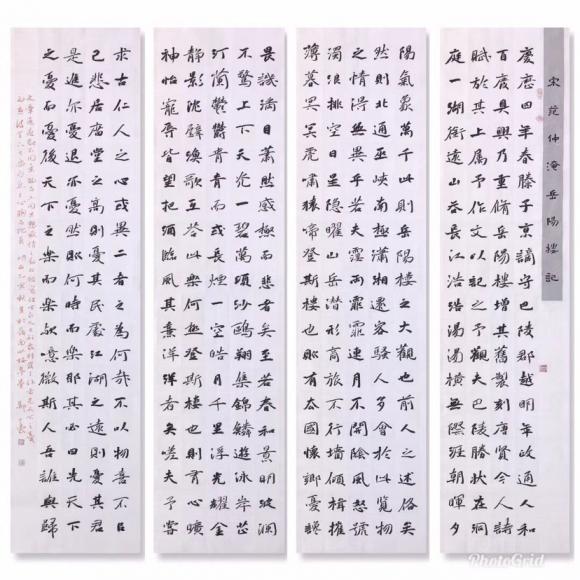 宋范仲淹岳陽樓記
慶曆四年春滕子京謫守巴陵郡越明年政通人和
百廢具興乃重脩岳陽樓增其舊製刻唐賢今人詩
賦於其上屬予作文以記之予觀夫巴陵勝狀在洞
庭一湖銜遠山吞長江浩浩湯湯橫無際涯朝暉夕
陰氣象萬千此則岳陽樓之大觀也前人之述備矣
然則北通巫峽南極瀟湘遷客騷人多會於此覽物
之情得無異乎若夫霪雨霏霏連月不開陰風怒號
濁浪排空日星隱曜山岳潛形商旅不行墻傾楫摧
薄暮冥冥虎嘯猿啼登斯樓也則有去國懷鄉憂讒
畏譏滿目蕭然感極而悲者矣至若春和景明波瀾
不驚上下天光一碧萬頃沙鷗翔集錦鱗游泳岸芷
汀蘭鬱鬱青青而或長煙一空皓月千里浮光耀金
靜影沉璧漁歌互答此樂何極登斯樓也則有心曠
神怡寵辱皆忘把酒臨風其喜洋洋者矣嗟夫予嘗
求古仁人之心或異二者之為何哉不以物喜不以
己悲居廟堂之高則憂其民處江湖之遠則憂其君
是進亦憂退亦憂然則何時而樂耶其必曰先天下
之憂而憂後天下之樂而樂歟噫微斯人吾誰與歸
PhotoGrid